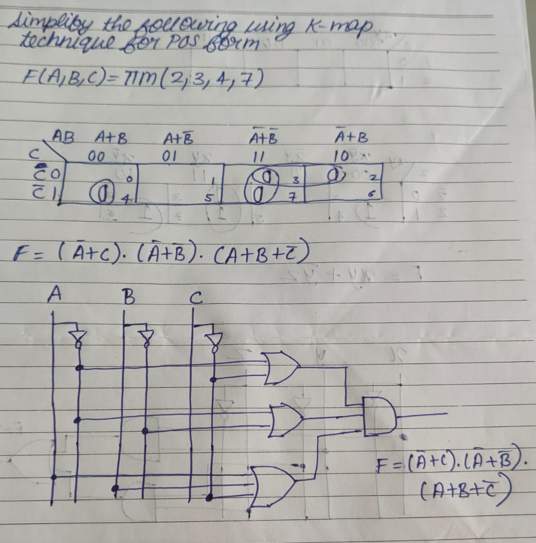 Simplify the following using K-map
technique for POS form
F(A,B,C) = πM(2,3,4,7)
AB A+B A+B̅ A̅+B̅ A̅+B
C 00 01 11 10
C 0 0 1 0 3 0 2
C̅ 1 0 4 5 0 7 6
F = (A̅+C).(A̅+B̅).(A+B+C̅)
A B C
F=(A̅+C).(A̅+B̅).
(A+B+C̅)